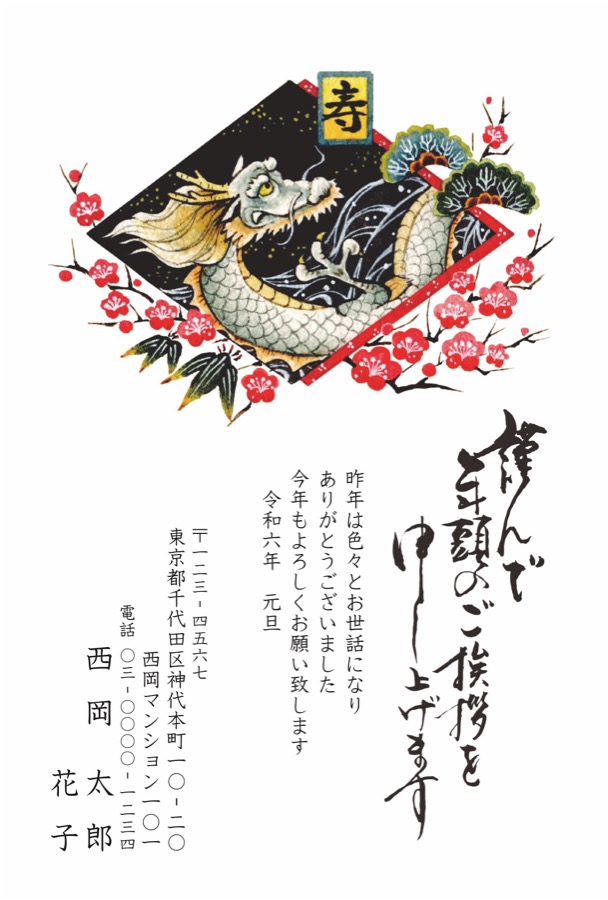 寿
謹んで
年頭のご挨拶を
申し上げます
昨年は色々とお世話になり
ありがとうございました
今年もよろしくお願い致します
令和六年 元旦
〒一二三-四五六七
東京都千代田区神代本町一〇-二〇
西岡マンション一〇一
電話 〇三-〇〇〇〇-一二三四
西岡 太郎
花子